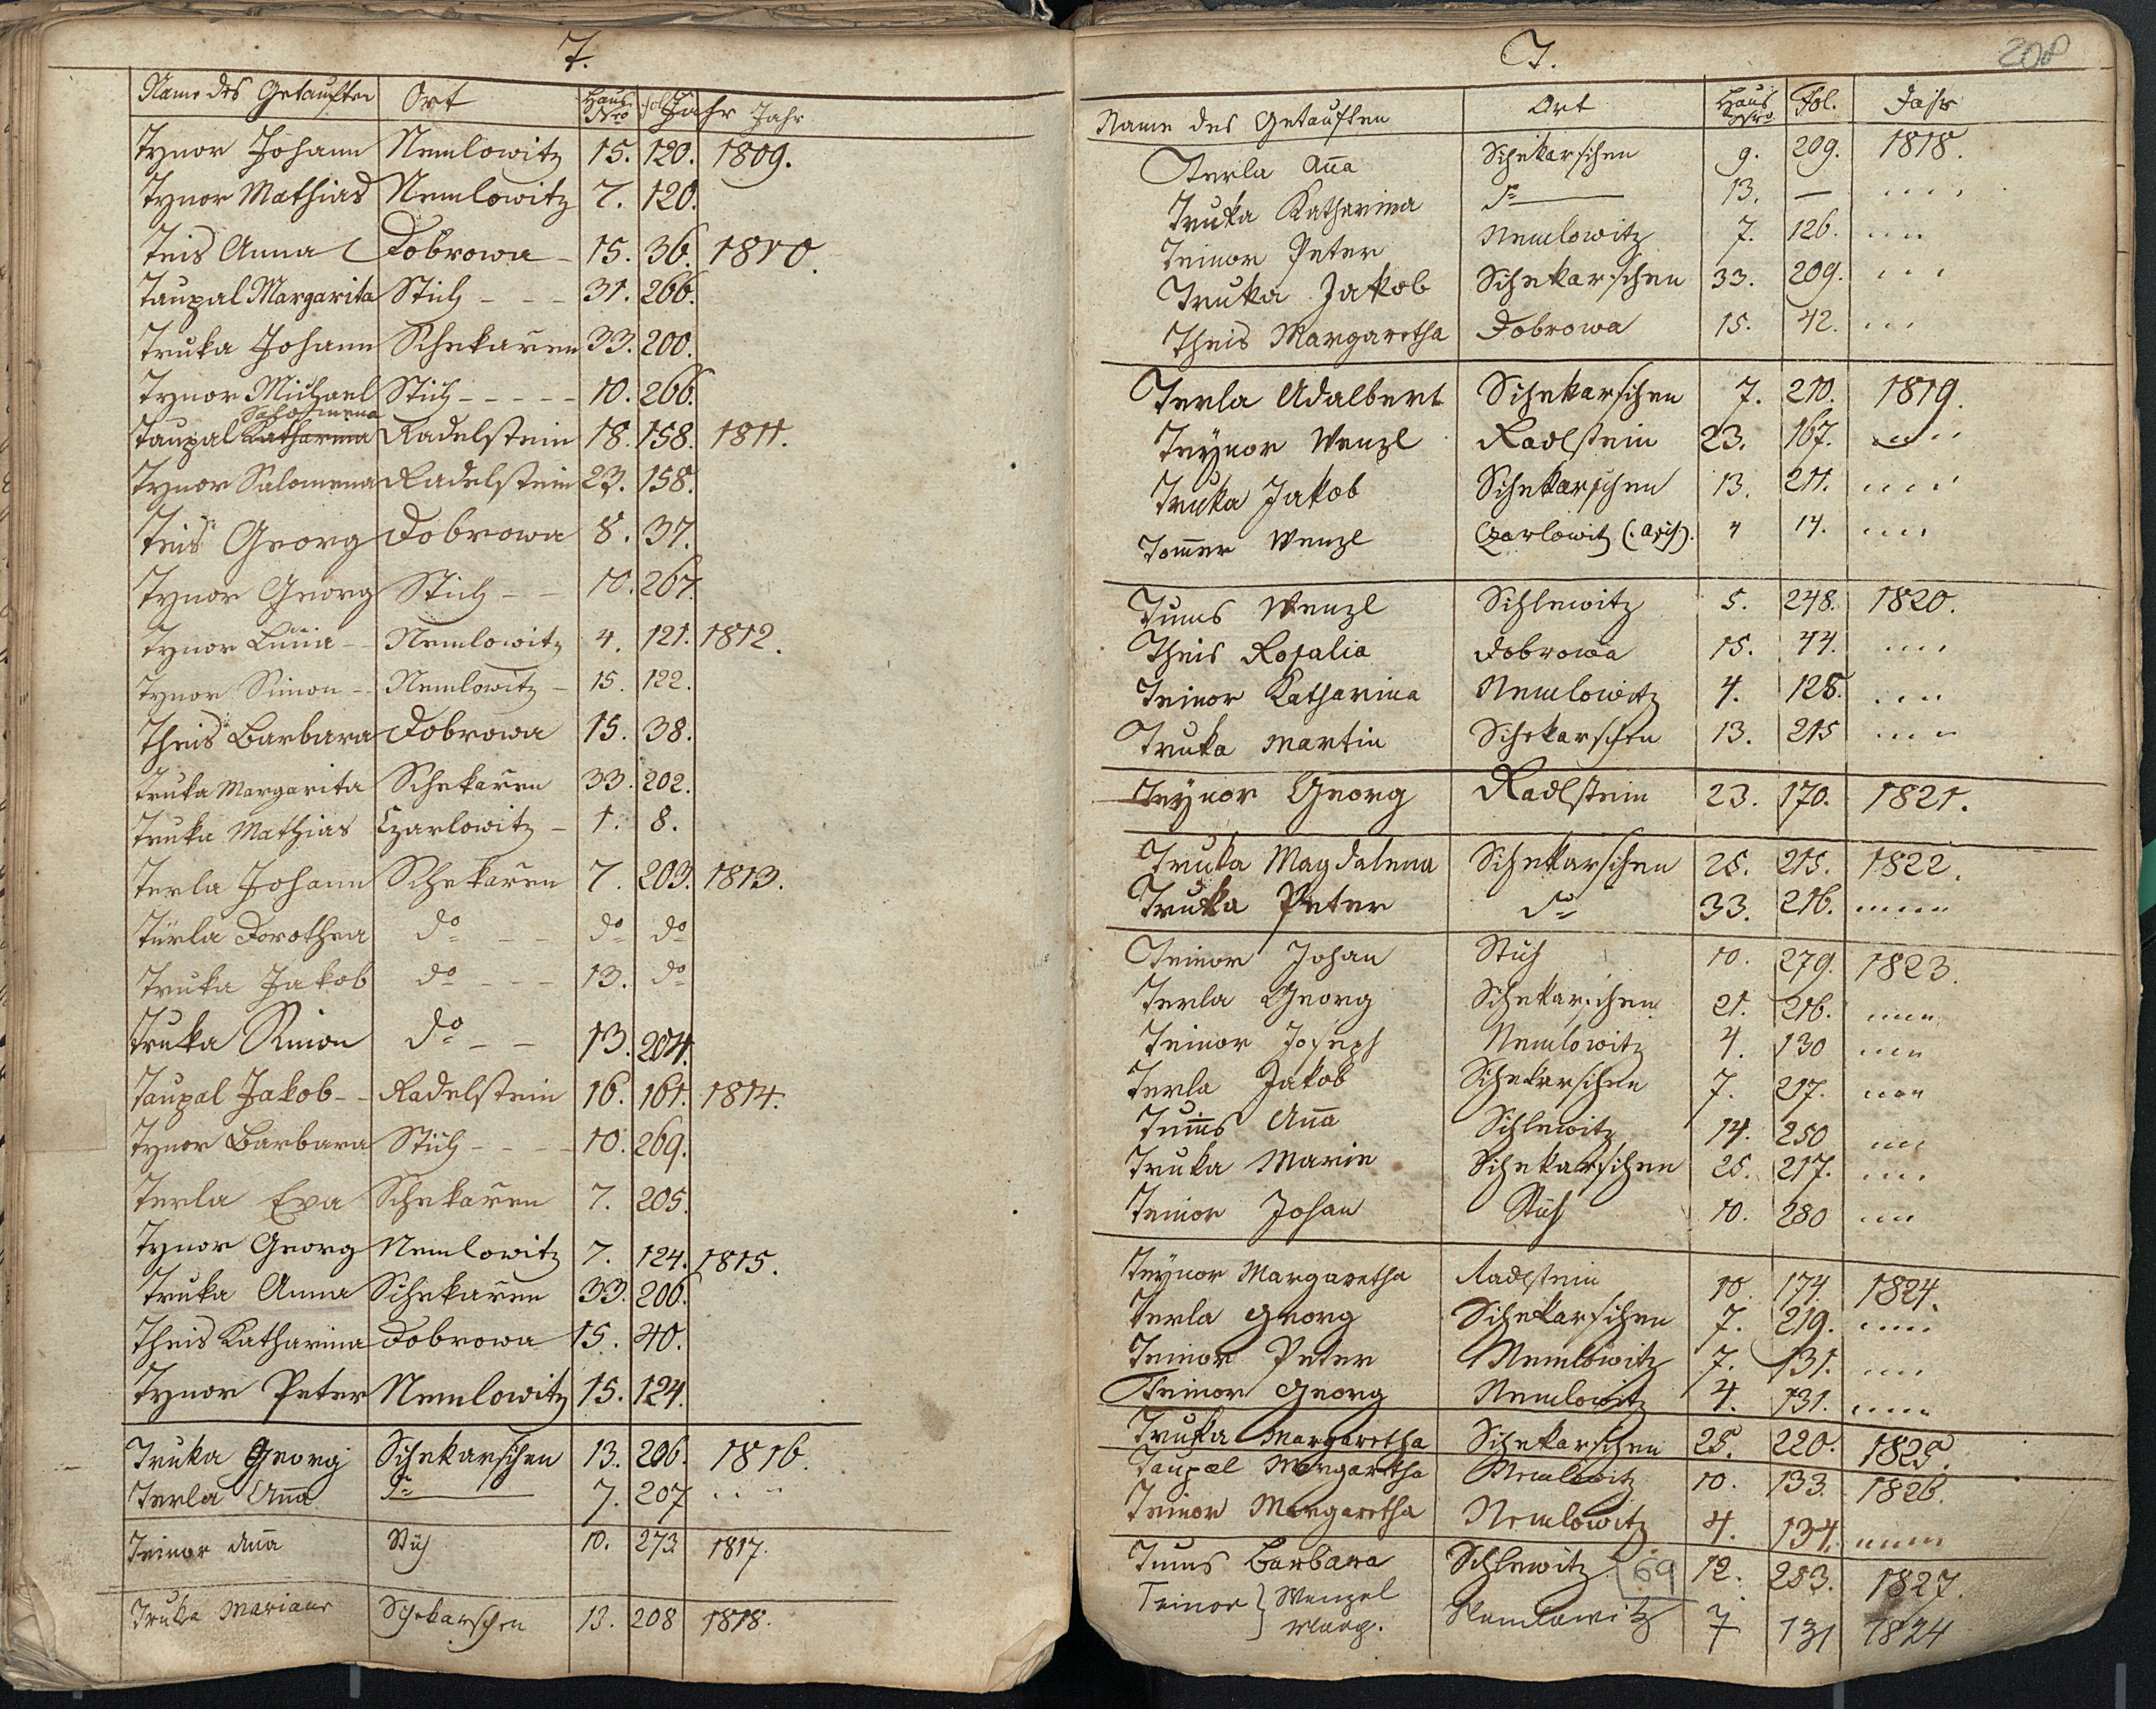 T.
Name des Getauften Ort Haus Nro fol. Jahr Jahr
Tynor Johann Nemlowitz 15. 120. 1809.
Tynor Mathias Nemlowitz 7. 120.
Teis Anna Dobrowa - 15. 36. 1810.
Taupal Margarita Stich - - - 31. 266.
Truka Johann Schekařen 33. 200.
Tynor Michael Stich - - - - - 10. 266.
Salomena
Taupal Katharina Radelstein 18. 158. 1811.
Tynor Salomena Radelstein 23. 158.
Teis Georg Dobrowa 8. 37.
Tynor Georg Stich - - 10. 267.
Tynor - - Nemlowitz 4. 121. 1812.
Tynor Simon - - Nemlowitz - 15. 122.
Theis Barbara Dobrowa 15. 38.
Truka Margarita Schekařen 33. 202.
Truka Mathias Czarlowitz - 1. 8.
Terla Johann Schekařen 7. 203. 1813.
Türla Dorothea do - - do do
Truka Jakob do - - - 13. do
Truka Simon do - - 13. 204.
Taupal Jakob - - Radelstein 16. 161. 1814.
Tynor Barbara Stich - - - - 10. 269.
Terla Eva Schekařen 7. 205.
Tynor Georg Nemlowitz 7. 124. 1815.
Truka Anna Schekařen 33. 206.
Theis Katharina Dobrowa 15. 40.
Tynor Peter Nemlowitz 15. 124.
Truka Georg Schekarschen 13. 206. 1816.
Terla Aña do 7. 207 . . . .
Teinor Aña Stich 10. 273 1817.
Truka Mariane Schekarschen 13. 208 1818.
T. 208
Name des Getauften Ort Haus Nro. Fol. Jahr
Terla Aña Schekarschen 9. 209. 1818.
Truka Katharina do 13. — . . . .
Teinor Peter Nemlowitz 7. 126. . . . .
Truka Jakob Schekarschen 33. 209. . . .
Theis Margaretha Dobrowa 15. 42. . . .
Terla Adalbert Schekarschen 7. 210. 1819.
Teynor Wenzl Radlstein 23. 167. . . . .
Truka Jakob Schekarschen 13. 211. . . . .
Tom̃er Wenzl Czarlowitz 4 14. . . . .
Tums Wenzl Schlewitz 5. 248. 1820.
Theis Rosalia Dobrowa 15. 44. . . . .
Teinor Katharina Nemlowitz 4. 128. . . . .
Truka Martin Schekarschen 13. 215 . . . .
Teynor Georg Radlstein 23. 170. 1821.
Truka Magdalena Schekarschen 25. 215. 1822.
Truka Peter do 33. 216. . . . . .
Teinor Johan Stich 10. 279. 1823.
Terla Georg Schekarschen 21. 216. . . . .
Teinor Joseph Nemlowitz 4. 130 . . . .
Terla Jakob Schekarschen 7. 217. . . . .
Tum̃s Aña Schlewitz 14. 250 . . . .
Truka Marie Schekarschen 25. 217. . . . .
Teinor Johan Stich 10. 280 . . . .
Teynor Margaretha Radlstein 10. 174. 1824.
Terla Georg Schekarschen 7. 219. . . . .
Teinor Peter Nemlowitz 7. 131. . . . .
Teinor Georg Nemlowitz 4. 131. . . . .
Truka Margaretha Schekarschen 25. 220. 1825.
Taupal Margaretha Nemlowitz 10. 133. 1826.
Teinor Margaretha Nemlowitz 4. 134. . . . . .
Tums Barbara Schlewitz 69 12. 253. 1827.
Teinor } Wenzel Nemlowitz 7 131 1824
Marg.